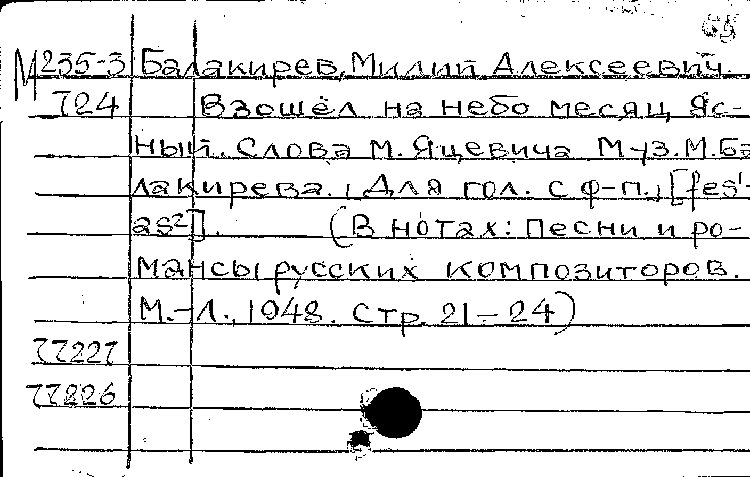 65
М235-3 Балакирев, Милий Алексеевич.
724 Взошёл на небо месяц яс-
ный. Слова М. Яцевича Муз. М. Ба
лакирева. Для гол. с ф-п., [fes¹-
as²]. (В нотах: Песни и ро-
мансы русских композиторов.
М.-Л., 1948. Стр. 21-24)
77227
77226